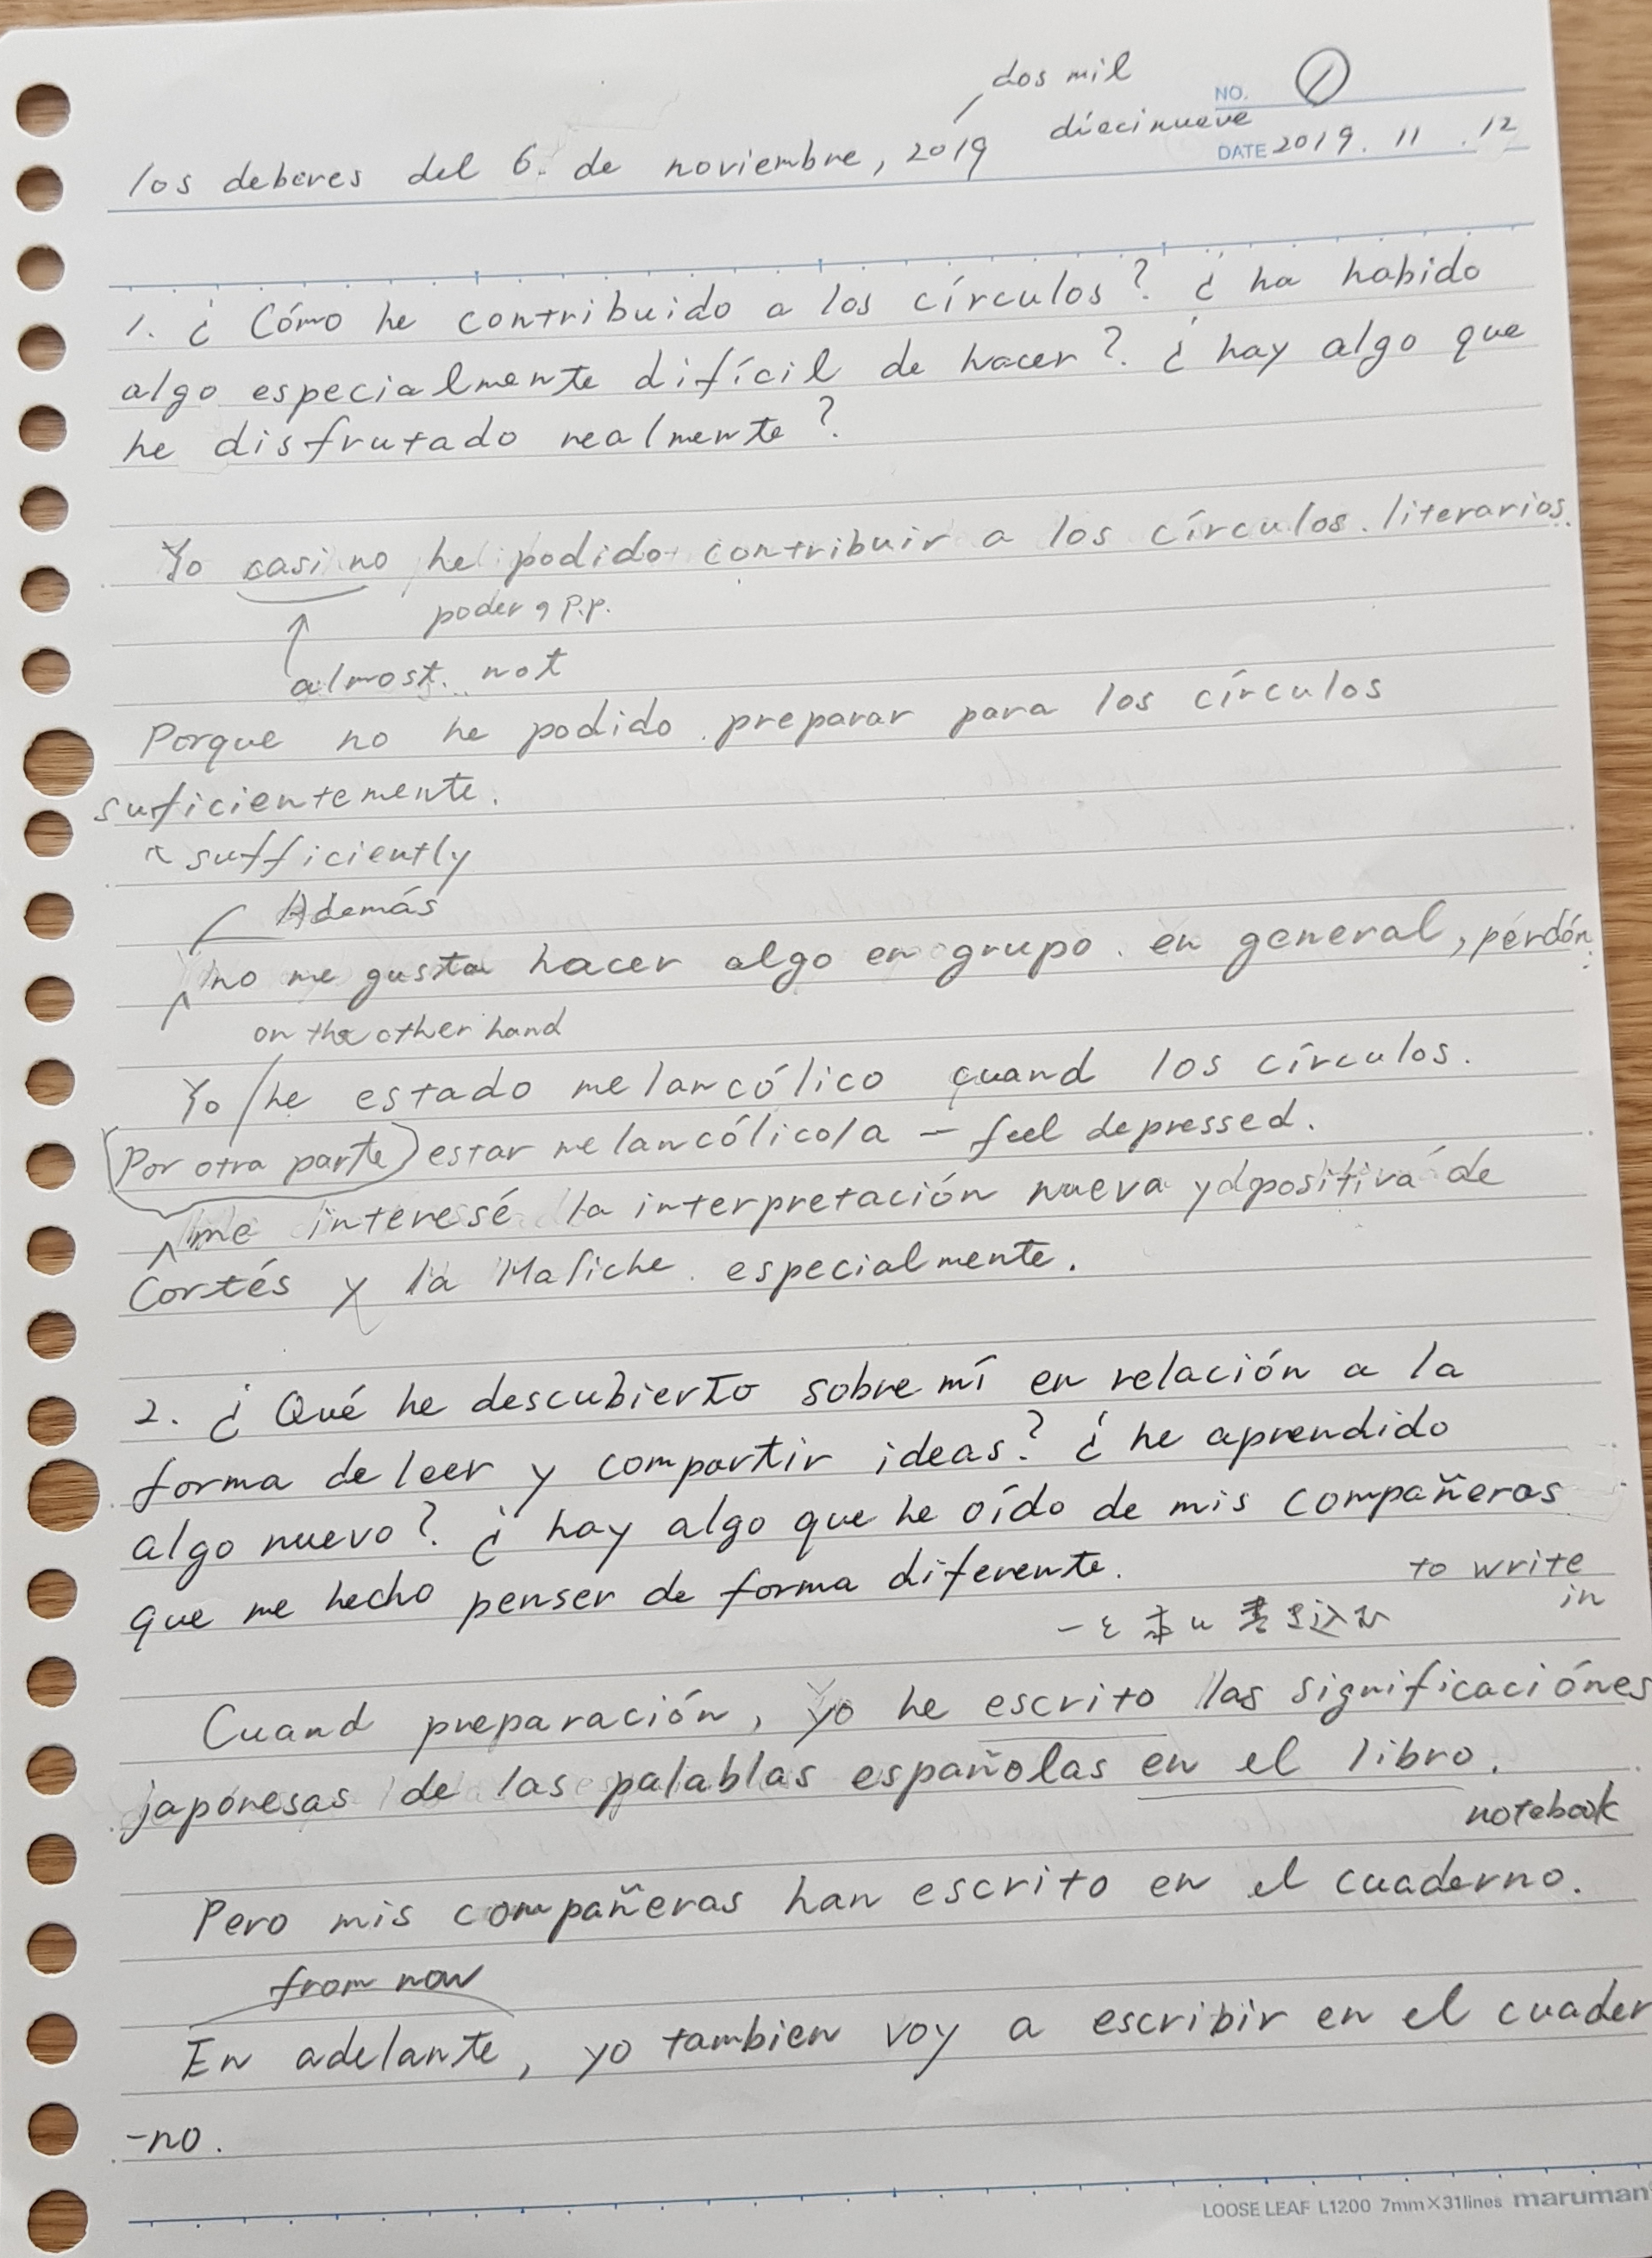 dos mil
diecinueve
NO. 1
DATE 2019. 11 . 12
los deberes del 6 de noviembre, 2019
1. ¿ Cómo he contribuido a los círculos? ¿ ha habido
algo especialmente difícil de hacer? ¿ hay algo que
he disfrutado realmente?
Yo casi no he podido contribuir a los círculos literarios.
poder の P.P.
almost not
Porque no he podido preparar para los círculos
suficientemente.
sufficiently
Además
no me gusta hacer algo en grupo en general, perdón.
on the other hand
Yo he estado melancólico quand los círculos.
Por otra parte estar melancólico/a – feel depressed.
me interesé la interpretación nueva y positiva de
Cortés y la Maliche especialmente.
2. ¿ Qué he descubierto sobre mí en relación a la
forma de leer y compartir ideas? ¿ he aprendido
algo nuevo? ¿ hay algo que he oído de mis compañeros
que me hecho penser de forma diferente.
to write
in
– を本に書き込む
Cuand preparación, yo he escrito las significaciónes
japonesas de las palablas españolas en el libro.
notebook
Pero mis compañeras han escrito en el cuaderno.
from now
En adelante, yo tambien voy a escribir en el cuader
-no.
LOOSE LEAF L1200 7mm×31lines maruman